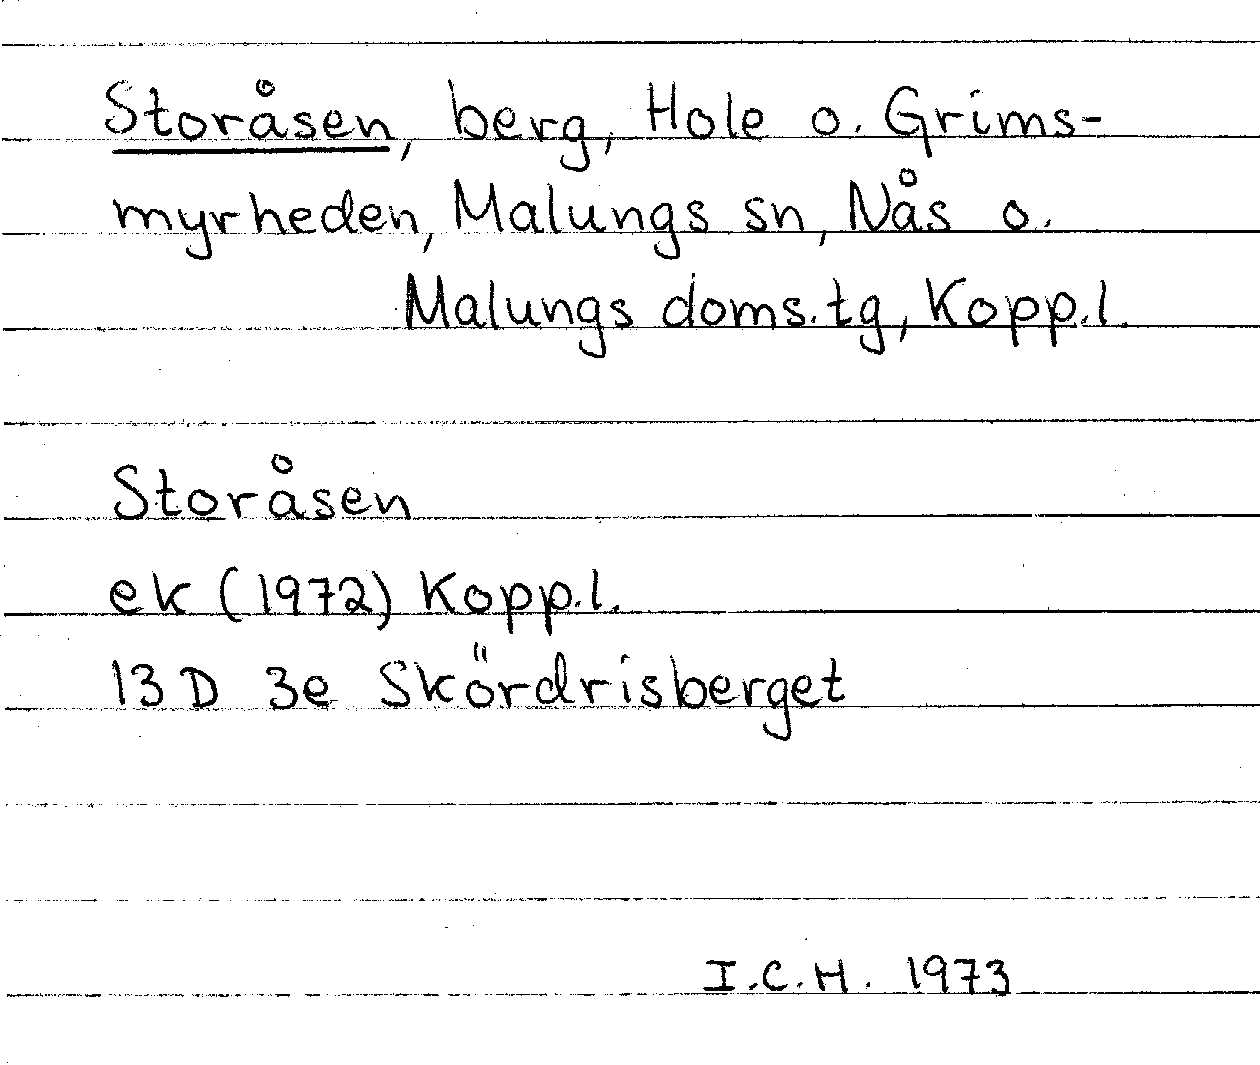 Storåsen, berg, Hole o. Grims-
myrheden, Malungs sn, Nås o.
Malungs doms.tg, Kopp.l.
Storåsen
ek (1972) Kopp.l.
13D 3e Skördrisberget
I.C.H. 1973